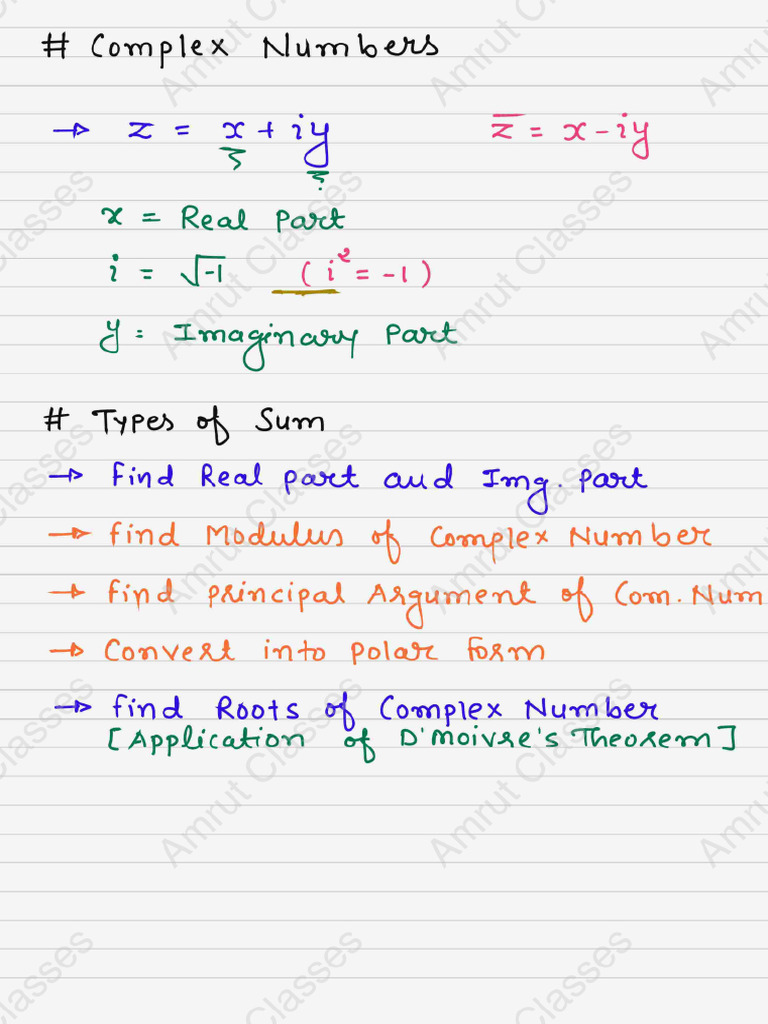 # Complex Numbers
→ z = x + iy    z̅ = x - iy
x = Real Part
i = √-1    ( i² = -1 )
y = Imaginary Part
# Types of Sum
→ find Real part and Img. part
→ find Modulus of Complex Number
→ find principal Argument of Com. Num
→ Convert into polar form
→ find Roots of Complex Number
[Application of D'Moivre's Theorem]
Amrut Classes